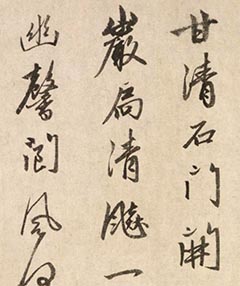 甘清石門開
巖扃清飈一
幽馨閬風